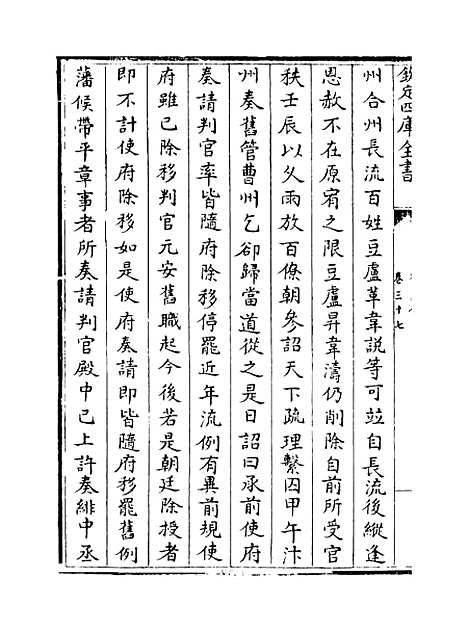 欽定四庫全書
卷三十七
州合州長流百姓豆盧革韋説等可竝自長流後縱逢
恩赦不在原宥之限豆盧昇韋濤仍削除自前所受官
秩壬辰以久雨放百僚朝參詔天下疏理繫囚甲午汴
州奏舊管曹州乞卻歸當道從之是日詔曰承前使府
奏請判官率皆隨府除移停罷近年流例有異前規使
府雖已除移判官元安舊職起今後若是朝廷除授者
即不計使府除移如是使府奏請即皆隨府移罷舊例
藩侯帶平章事者所奏請判官殿中已上許奏緋中丞